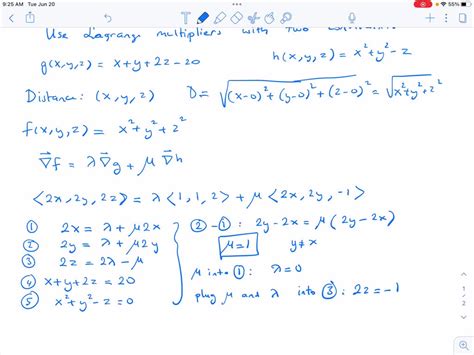 9:25 AM Tue Jun 20
55%
Use Lagrang multipliers with two constraints
g(x,y,z) = x+y+2z-20
h(x,y,z) = x²+y²-z
Distance: (x,y,z)
D = √((x-0)²+(y-0)²+(z-0)²) = √(x²+y²+z²)
f(x,y,z) = x²+y²+z²
∇⃗f = λ∇⃗g + μ∇⃗h
<2x, 2y, 2z> = λ<1,1,2> + μ<2x, 2y, -1>
① 2x = λ + μ2x
② 2y = λ + μ2y
③ 2z = 2λ - μ
④ x+y+2z = 20
⑤ x²+y²-z = 0
② - ① : 2y-2x = μ(2y-2x)
μ=1 y≠x
μ into ① : λ=0
plug μ and λ into ③ : 2z = -1
1
2